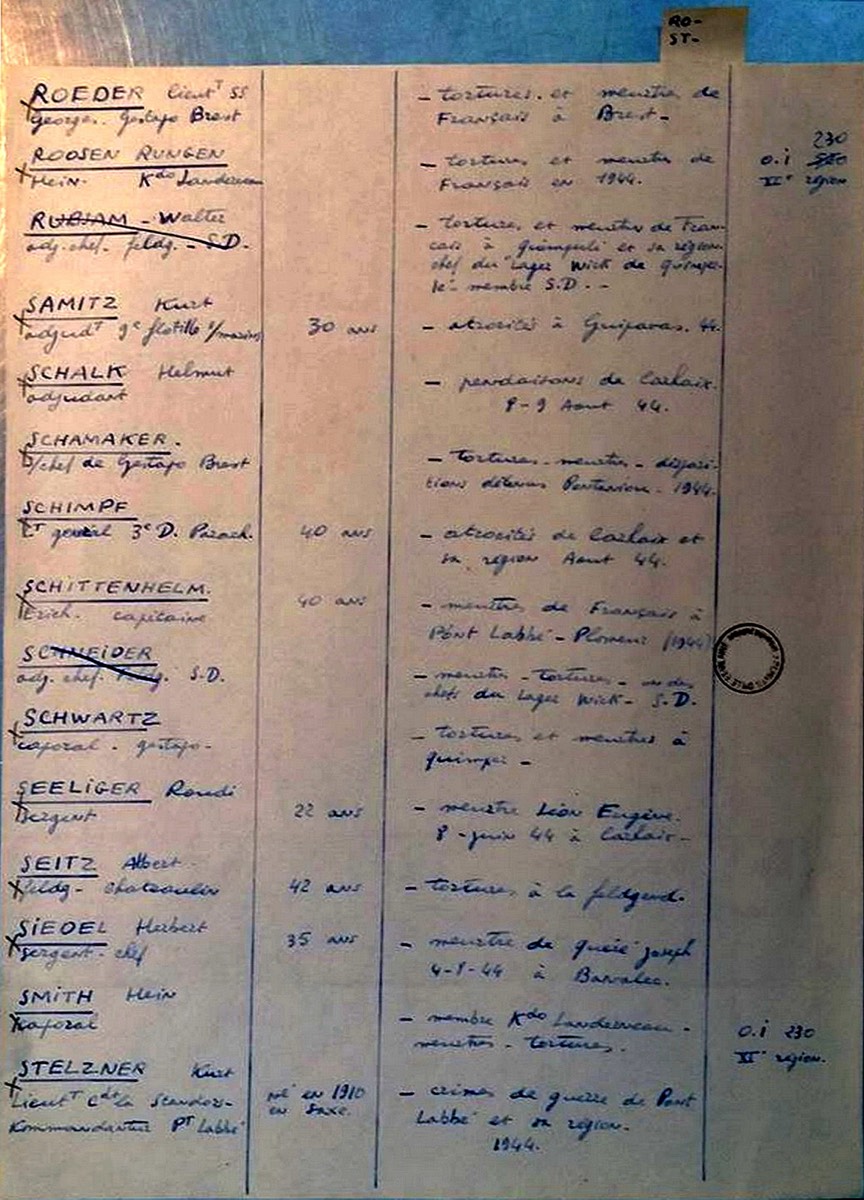 RO-
ST-
ROEDER lieut^T SS
georges. Gestapo Brest
- tortures. et meurtres de
Français à Brest -
ROOSEN RUNGEN
Hein. K^do Landerneau
- tortures et meurtres de
Français en 1944.
230
o.i
XI^e région
RUBJAM - Walter
adj. chef. feldg. - S.D.
- tortures et meurtres de Fran-
cais à Quimperlé et sa région
chef du Lager Wick de Quimper-
lé - membre S.D. -
SAMITZ Kurt
adjud^t 9^e flotille s/marins
30 ans
- atrocités à Guipavas. 44.
SCHALK Helmut
adjudant
- pendaisons de Carhaix.
8-9 Aout 44.
SCHAMAKER.
S/chef de Gestapo Brest
- tortures - meurtres - dispari-
tions détenus Pontaniou - 1944.
SCHIMPF
L^T général 3^e D. Parach.
40 ans
- atrocités de Carhaix et
sa région Aout 44.
SCHITTENHELM.
Erich. capitaine
40 ans
- meurtres de Français à
Pont Labbé - Plomeur (1944)
SCHNEIDER
adj. chef. Feldg. S.D.
- meurtres - tortures - un des
chefs du Lager Wick - S.D.
SCHWARTZ
caporal. gestapo -
- tortures et meurtres à
Quimper -
SEELIGER Roudi
Sergent
22 ans
- meurtre Léon Eugène.
8 - juin 44 à Carhaix -
SEITZ Albert
feldg - Chateaulin
42 ans
- tortures à la feldgend.
SIEDEL Herbert
sergent - chef
35 ans
- meurtre de Quéré Joseph
4-8-44 à Banalec.
SMITH Hein
caporal
- membre K^do Landerneau -
meurtres - tortures.
o.i 230
XI^e région.
STELZNER Kurt
Lieut^T C^dt la Standors-
Kommandantur P^T Labbé
né en 1910
en Saxe.
- crimes de guerre de Pont
Labbé et sa région.
1944.